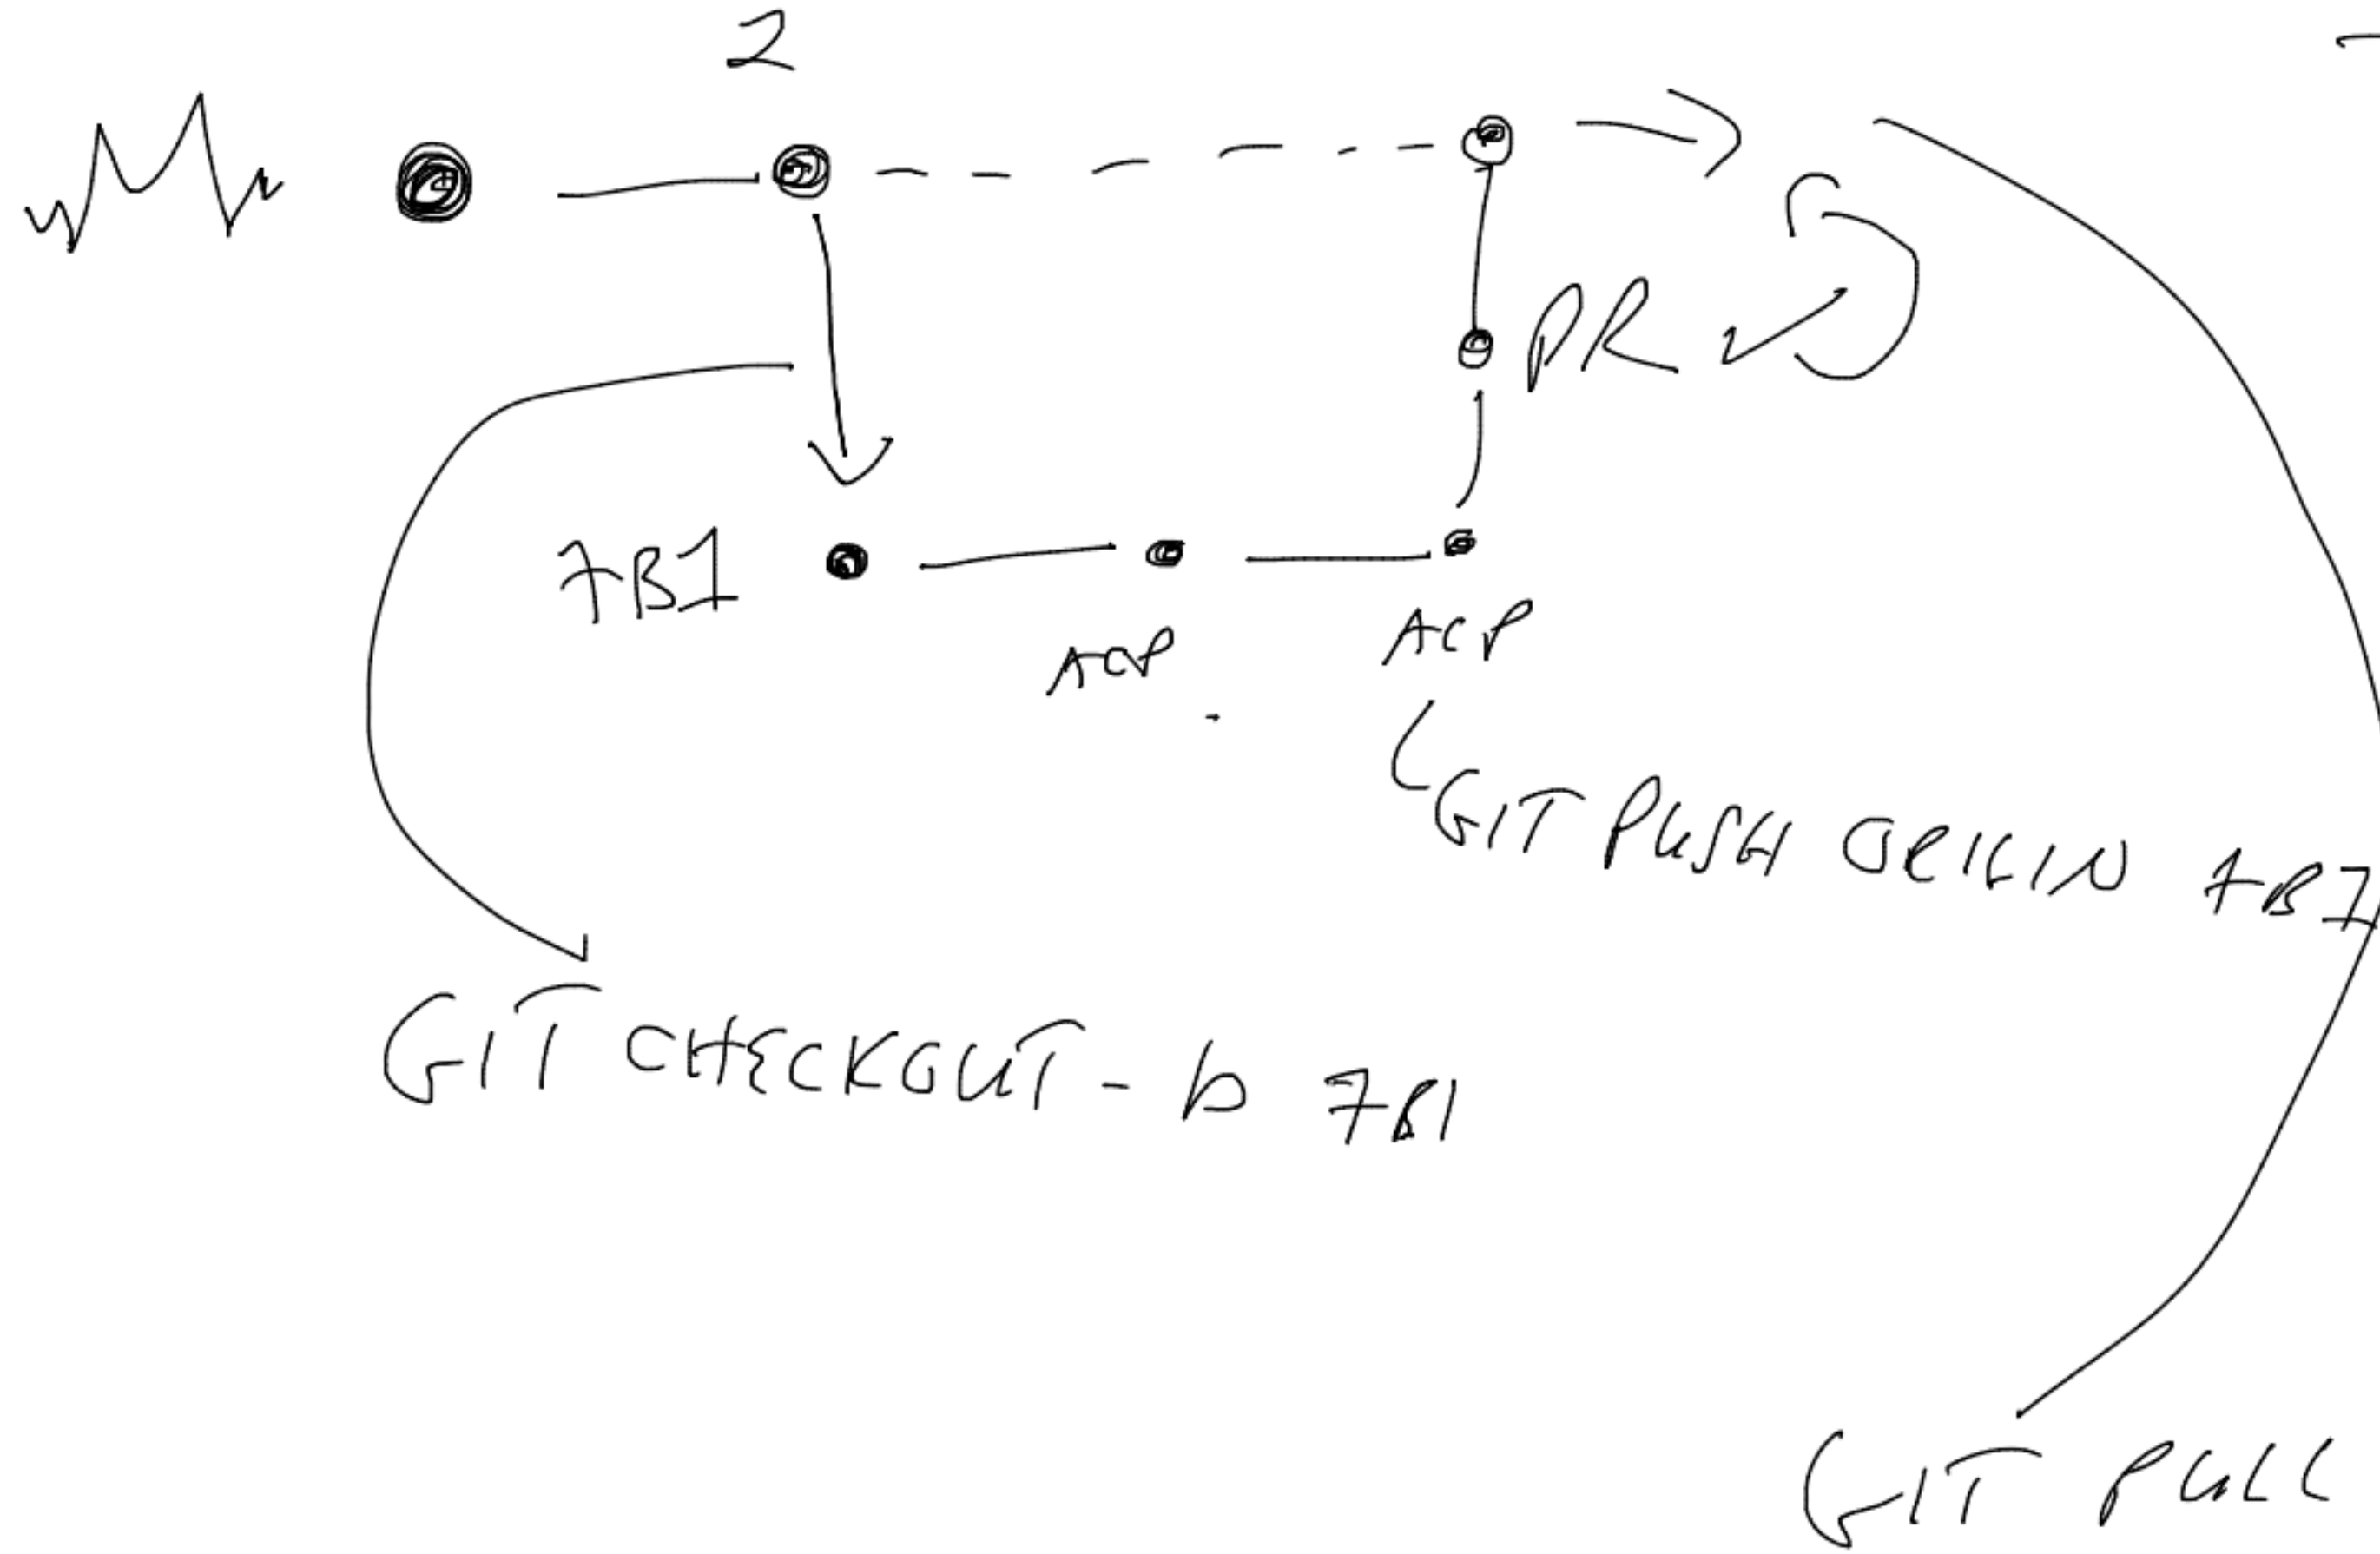 2
PR
FB1
ACP
ACP
GIT PUSH ORIGIN FB1
GIT CHECKOUT - b FB1
GIT PULL